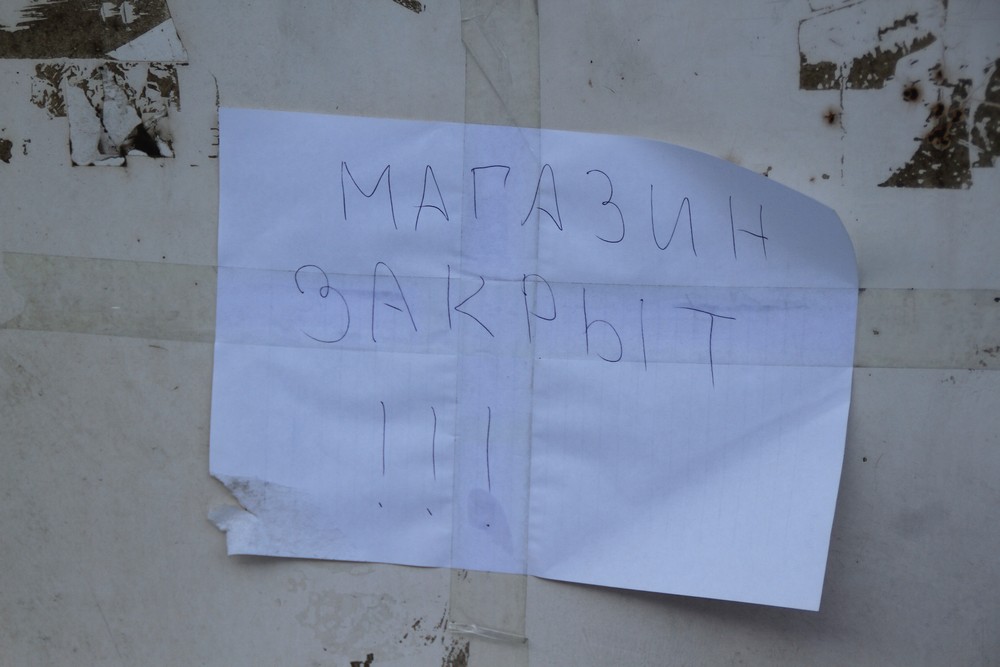 МАГАЗИН
ЗАКРЫТ
!!!